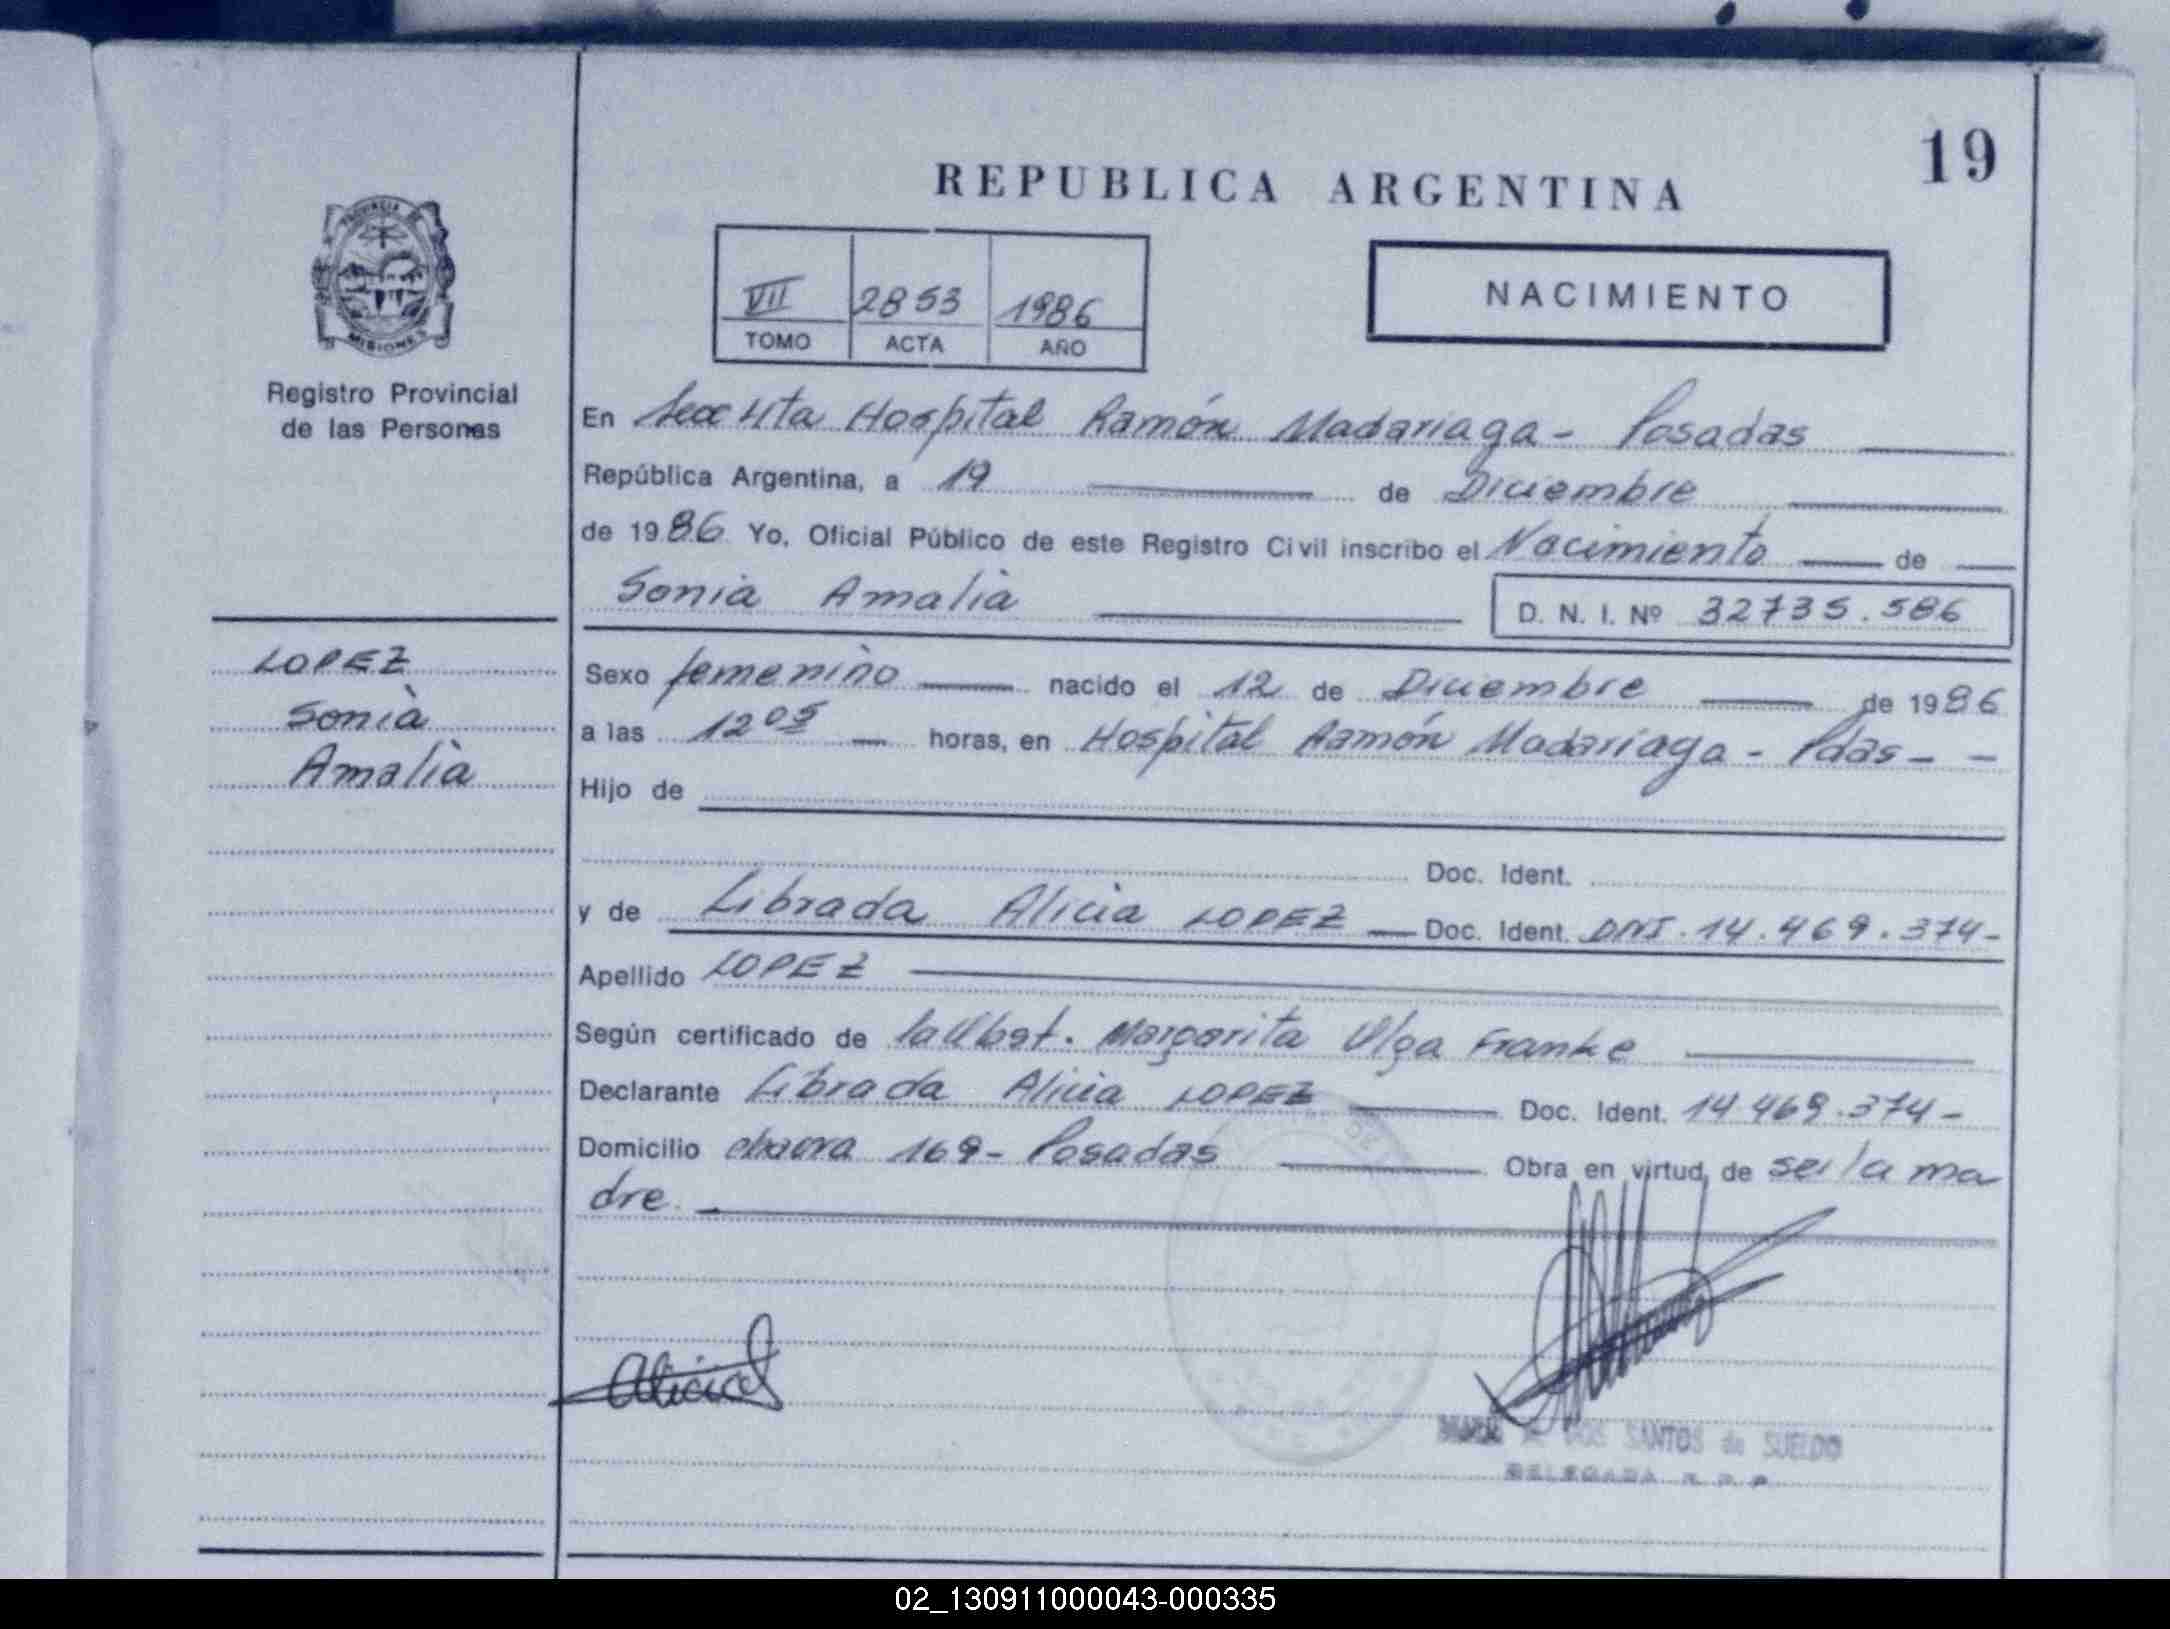 19
REPUBLICA ARGENTINA
PROVINCIA DE
MISIONES
Registro Provincial
de las Personas
VII 2853 1986
TOMO ACTA AÑO
NACIMIENTO
En Hospital Ramón Madariaga - Posadas
República Argentina, a 19 de Diciembre
de 1986 Yo, Oficial Público de este Registro Civil inscribo el Nacimiento de
Sonia Amalia D. N. I. Nº 32735.586
LOPEZ
Sonia
Amalia
Sexo femenino nacido el 12 de Diciembre de 1986
a las 12 05 horas, en Hospital Ramón Madariaga - Pdas - -
Hijo de
Doc. Ident.
y de Librada Alicia LOPEZ Doc. Ident. DNI. 14.469.374-
Apellido LOPEZ
Según certificado de la Obst. Margarita Olga Franke
Declarante Librada Alicia LOPEZ Doc. Ident. 14.469.374-
Domicilio 169- Posadas Obra en virtud de ser la ma
dre
Alicia
DOS SANTOS de SUELDO
DELEGADA R. P. P.
02_130911000043-000335